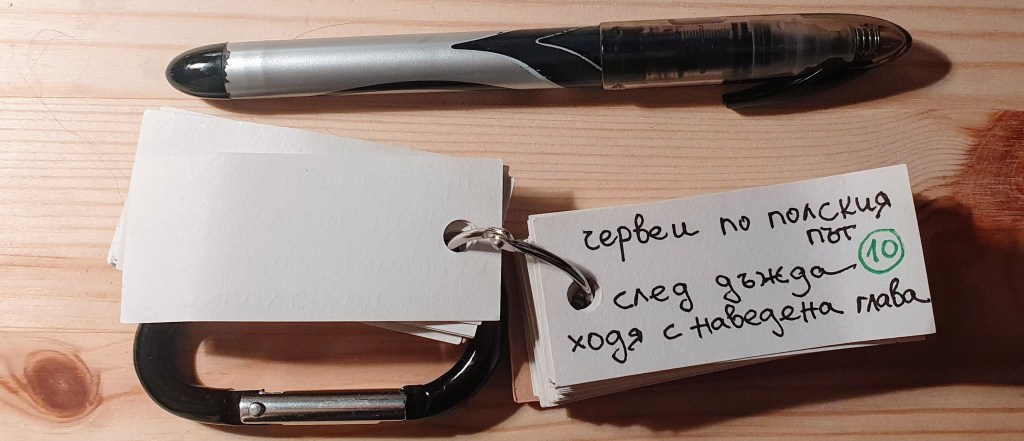 червеи по полския
път
10
след дъжда
ходя с наведена глава